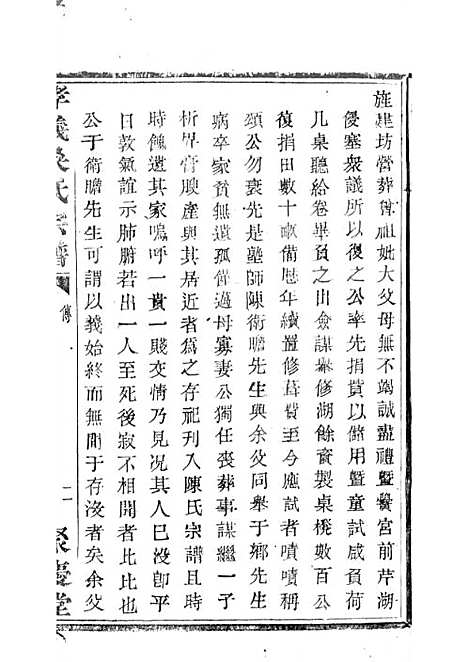 旌建坊营葬傳祖妣大父母無不竭誠盡禮暨黌宮前芹湖
優塞衆議所以復之公率先捐貲以備用暨童試咸負荷
几桌聽給卷畢負之出僉謀舉修湖餘資製桌櫈數百公
復捐田數十畝備歷年續置修葺費至今應試者嘖嘖稱
頌公勿衰先是塾師陳術瞻先生與余父同舉于鄉先生
病卒家貧無遺孤僅邁母寡妻公獨任喪葬事謀繼一子
析畀膏腴產與其居近者為之存祀刋入陳氏宗譜且時
時餽遺其家嗚呼一貴一賤交情乃見况其人已没卽平
日敦氣誼示肺腑若出一人至死後寂不相聞者比比也
公于術瞻先生可謂以義始終而無間于存没者矣余父
孝義吳氏宗譜 傳 二 聚慶堂